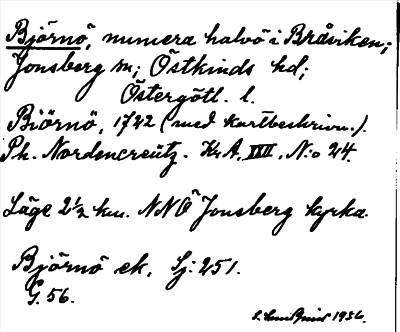 Björnö, numera halvö i Bråviken;
Jonsberg sn; Östkinds hd;
Östergötl. l.
Biörnö, 1742 (med kartbeskrivn.).
Ph. Nordencreütz. Kr. A. XXII, N:o 24.
Läge 2½ km. NNO Jonsberg kyrka.
Björnö ek. Sj: 251.
G. 56.
1936.